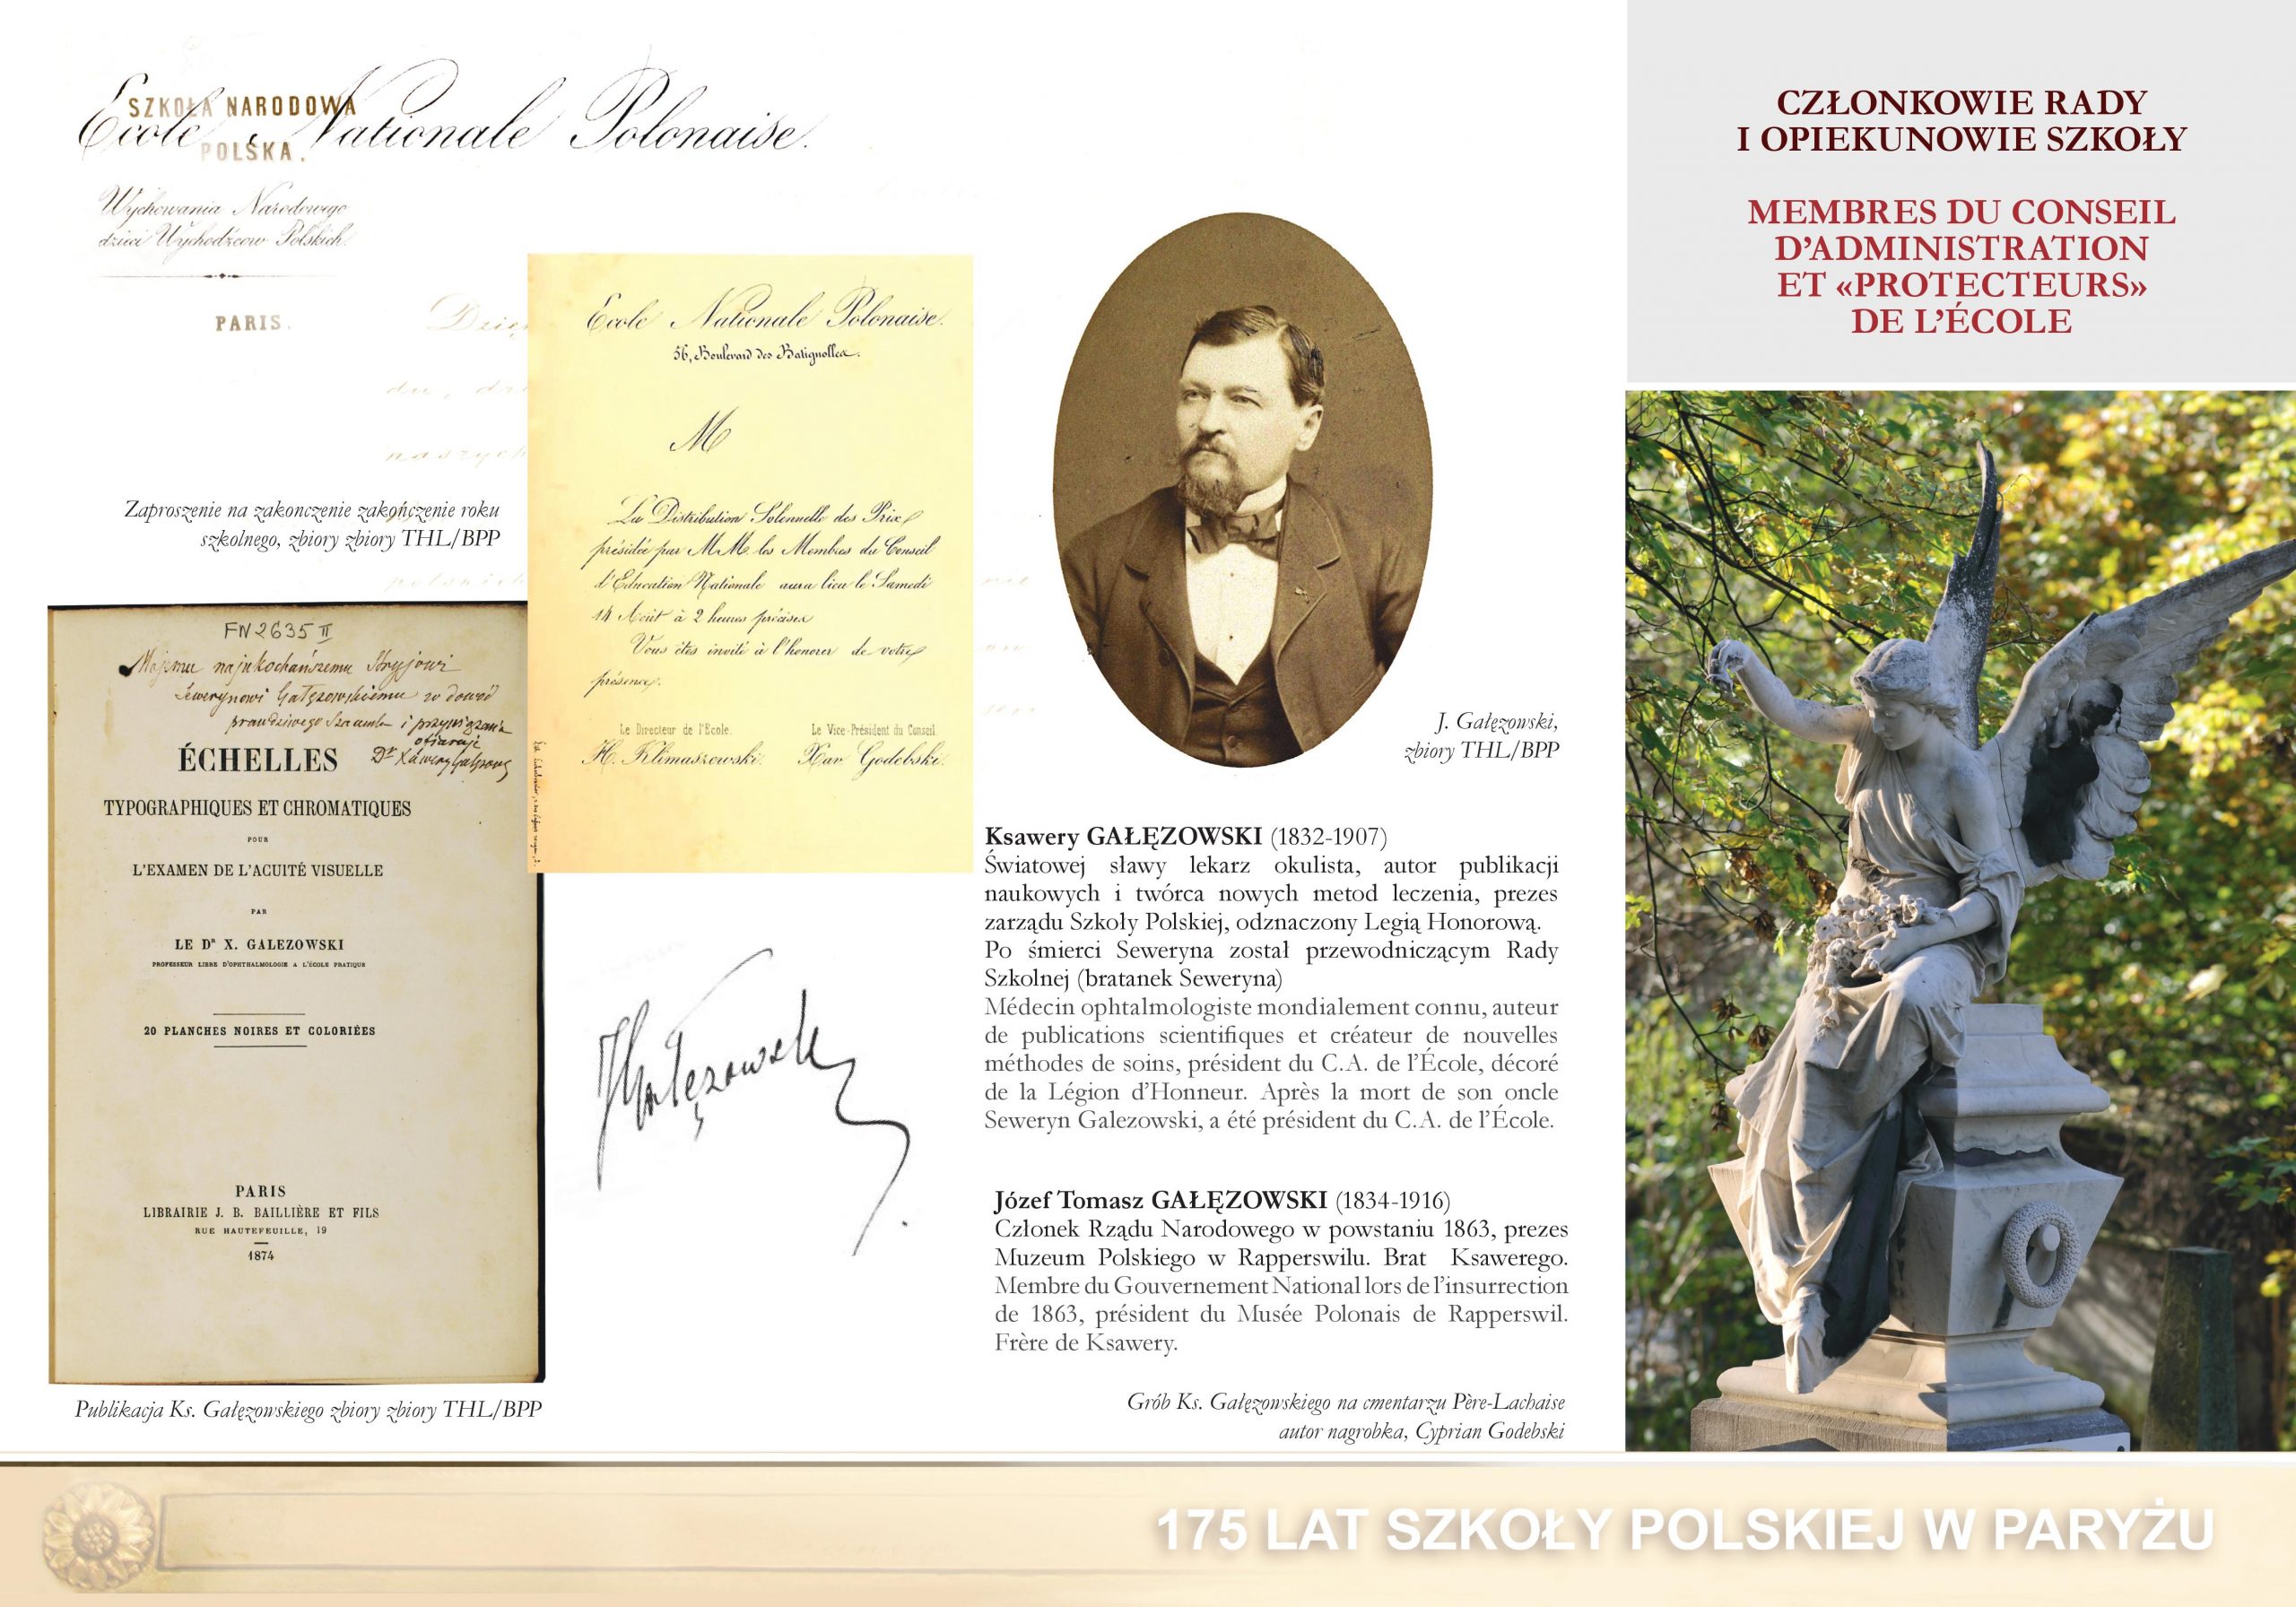 Ecole Nationale Polonaise.
SZKOŁA NARODOWA
POLSKA.
Wychowania Narodowego
dzieci Wychodźców Polskich
PARIS.
du, dro
naszych
polskich
Zaproszenie na zakonczenie zakończenie roku
szkolnego, zbiory zbiory THL/BPP
Ecole Nationale Polonaise.
56, Boulevard des Batignolles.
M
La Distribution Solennelle des Prix
présidée par MM. les Membres du Conseil
d'Education Nationale aura lieu le Samedi
14 Août à 2 heures précises
Vous êtes invité à l'honorer de votre
présence.
Le Directeur de l'Ecole.
H. Klimaszewski.
Le Vice-Président du Conseil.
Xav Godebski.
FN 2635 II
Mojemu najukochańszemu Stryjowi
Sewerynowi Gałęzowskiemu w dowód
prawdziwego Szacunku i przywiązania
ofiaruje
Dr Xawery Gałęzowski
ÉCHELLES
TYPOGRAPHIQUES ET CHROMATIQUES
POUR
L'EXAMEN DE L'ACUITÉ VISUELLE
PAR
LE DR X. GALEZOWSKI
PROFESSEUR LIBRE D'OPHTHALMOLOGIE A L'ÉCOLE PRATIQUE
20 PLANCHES NOIRES ET COLORIÉES
PARIS
LIBRAIRIE J. B. BAILLIÈRE ET FILS
RUE HAUTEFEUILLE, 19
1874
Publikacja Ks. Gałęzowskiego zbiory zbiory THL/BPP
JGałęzowski
J. Gałęzowski,
zbiory THL/BPP
Ksawery GAŁĘZOWSKI (1832-1907)
Światowej sławy lekarz okulista, autor publikacji
naukowych i twórca nowych metod leczenia, prezes
zarządu Szkoły Polskiej, odznaczony Legią Honorową.
Po śmierci Seweryna został przewodniczącym Rady
Szkolnej (bratanek Seweryna)
Médecin ophtalmologiste mondialement connu, auteur
de publications scientifiques et créateur de nouvelles
méthodes de soins, président du C.A. de l'École, décoré
de la Légion d'Honneur. Après la mort de son oncle
Seweryn Galezowski, a été président du C.A. de l'École.
Józef Tomasz GAŁĘZOWSKI (1834-1916)
Członek Rządu Narodowego w powstaniu 1863, prezes
Muzeum Polskiego w Rapperswilu. Brat Ksawerego.
Membre du Gouvernement National lors de l'insurrection
de 1863, président du Musée Polonais de Rapperswil.
Frère de Ksawery.
Grób Ks. Gałęzowskiego na cmentarzu Père-Lachaise
autor nagrobka, Cyprian Godebski
CZŁONKOWIE RADY
I OPIEKUNOWIE SZKOŁY
MEMBRES DU CONSEIL
D'ADMINISTRATION
ET «PROTECTEURS»
DE L'ÉCOLE
175 LAT SZKOŁY POLSKIEJ W PARYŻU